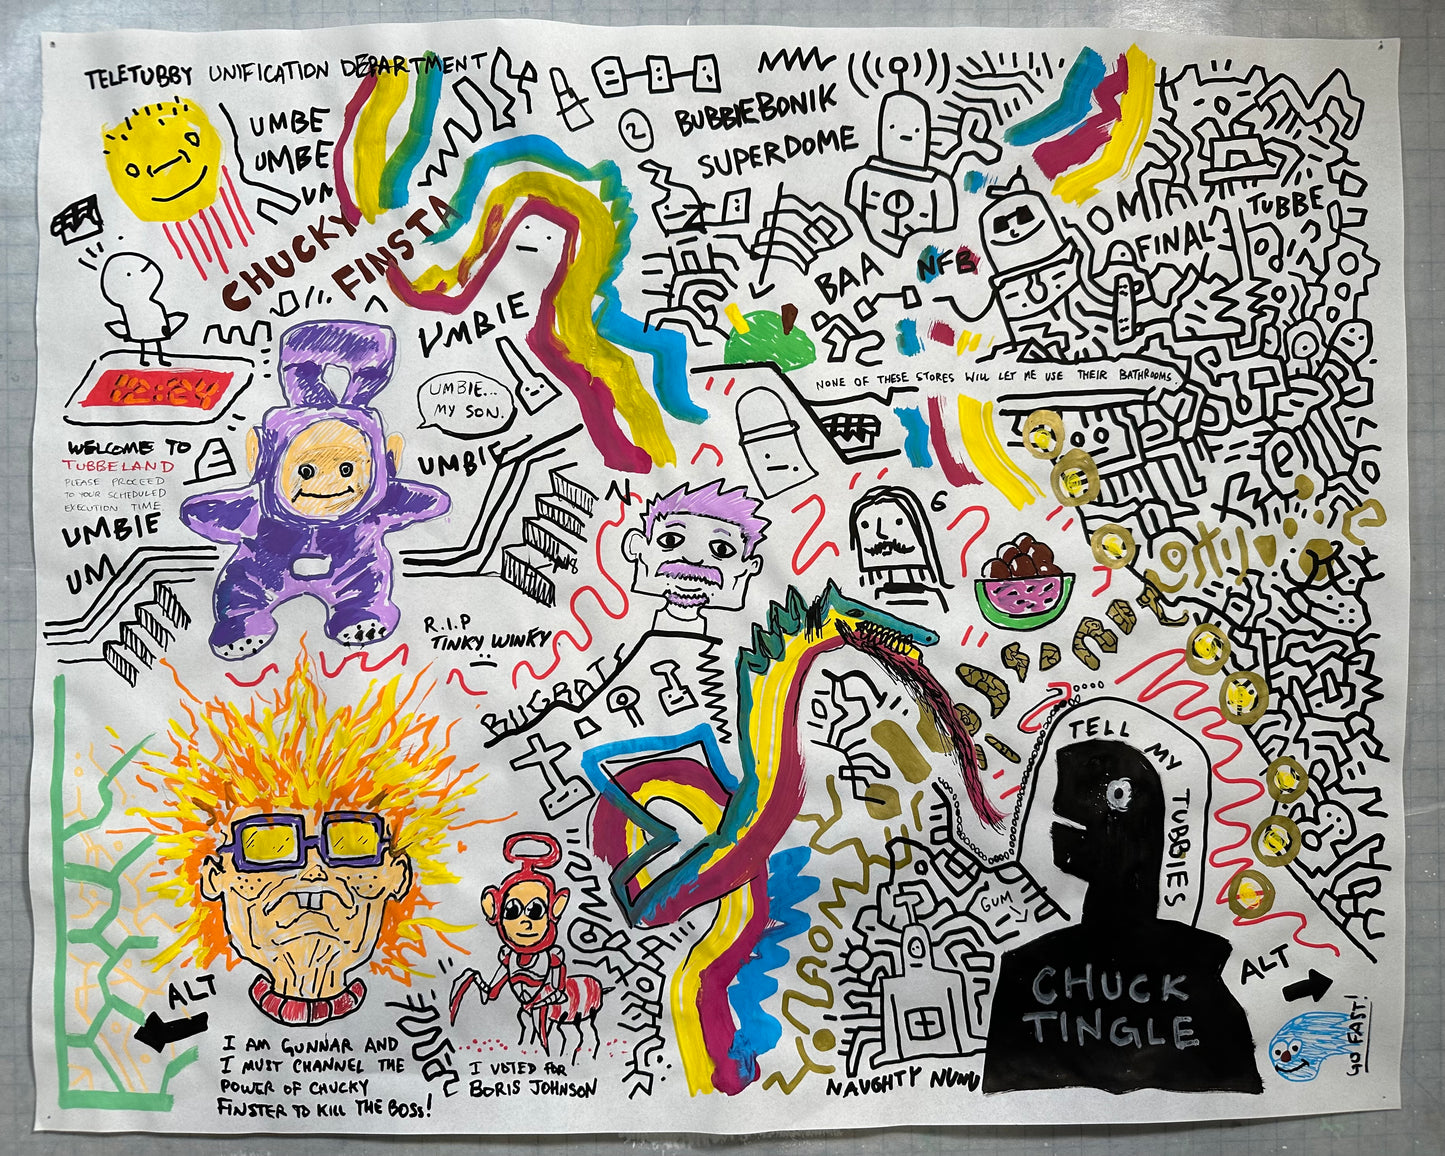 TELETUBBY UNIFICATION DEPARTMENT
UMBE
UMBE
UM
CHUCKY
FINSTA
2
BUBBIEBONIK
SUPERDOME
BAA
NFB
FINAL
TUBBE
NONE OF THESE STORES WILL LET ME USE THEIR BATHROOMS.
42:24
WELCOME TO
TUBBELAND
PLEASE PROCEED
TO YOUR SCHEDULED
EXECUTION TIME
UMBIE
UM
UMBIE
UMBIE...
MY SON.
UMBIE
R.I.P
TINKY WINKY
6
BUGRATS
TELL MY TUBBIES
CHUCK
TINGLE
GUM
ALT
ALT
I AM GUNNAR AND
I MUST CHANNEL THE
POWER OF CHUCKY
FINSTER TO KILL THE BOSS!
I VOTED FOR
BORIS JOHNSON
NAUGHTY NUNU
GO FAST!